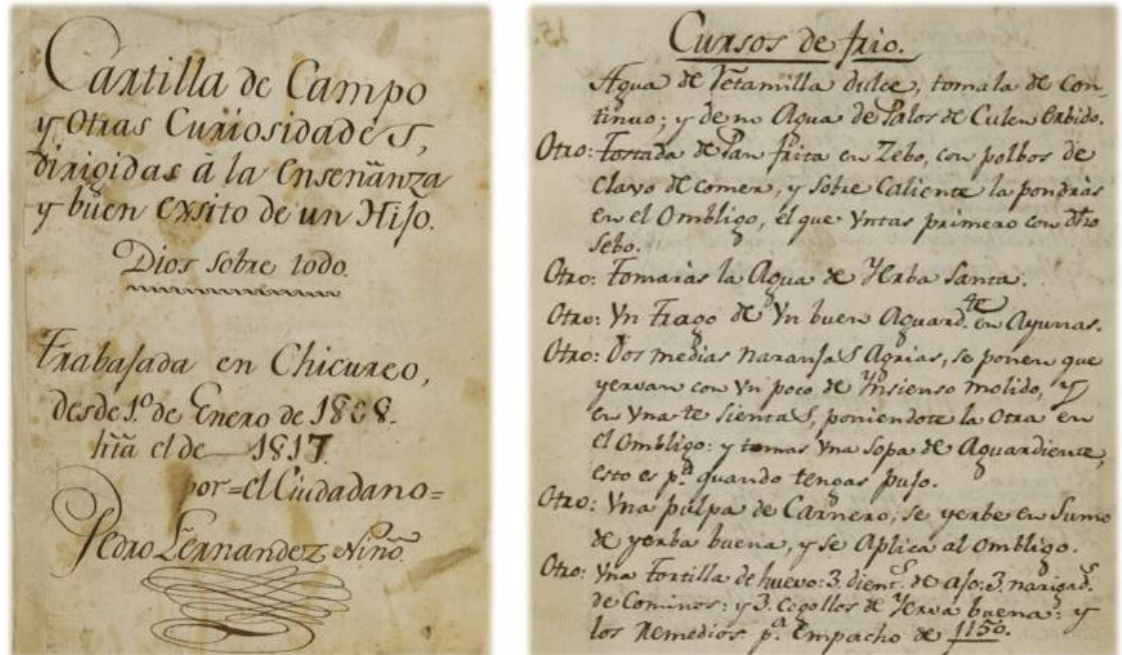 Cartilla de Campo
y Otras Curiosidades,
dirigidas â la Enseñanza
y buen Exsito de un Hijo.
Dios sobre todo.
Trabajada en Chicureo,
desde 1.º de Enero de 1808.
hta el de 1817.
por=el Ciudadano=
Pedro Fernandez Niño
Cursos de frio.
Agua de Retamilla dulce, tomala de con-
tinuo; y de no Agua de Palos de Culen Orbido.
Otro: Tostada de Pan frita en Zebo, con polbos de
Clavo de comer, y sobre Caliente la pondràs
en el Ombligo, èl que Yntas primero con dho
Sebo.
Otro: Tomaràs la Agua de Yerba Santa.
Otro: Yn Trago de Yn buen Aguard.te en Ayunas.
Otro: Dos medias naranjas Agrias, se ponen que
yervan con Yn poco de Ynsienso molido, y
en Yna te sientas, poniendote la Otra en
el Ombligo: y tomas Yna Sopa de Aguardiente,
esto es p.ª quando tengas pujo.
Otro: Yna pulpa de Carnero, se yerbe en Sumo
de yerba buena, y se Aplica al Ombligo.
Otro: Yna Tortilla de huevo: 3. dient.s de ajo: 3. narigad.s
de Cominos: y 3. Cogollos de Yerva buena: y
los Remedios p.ª Empacho de 1150.